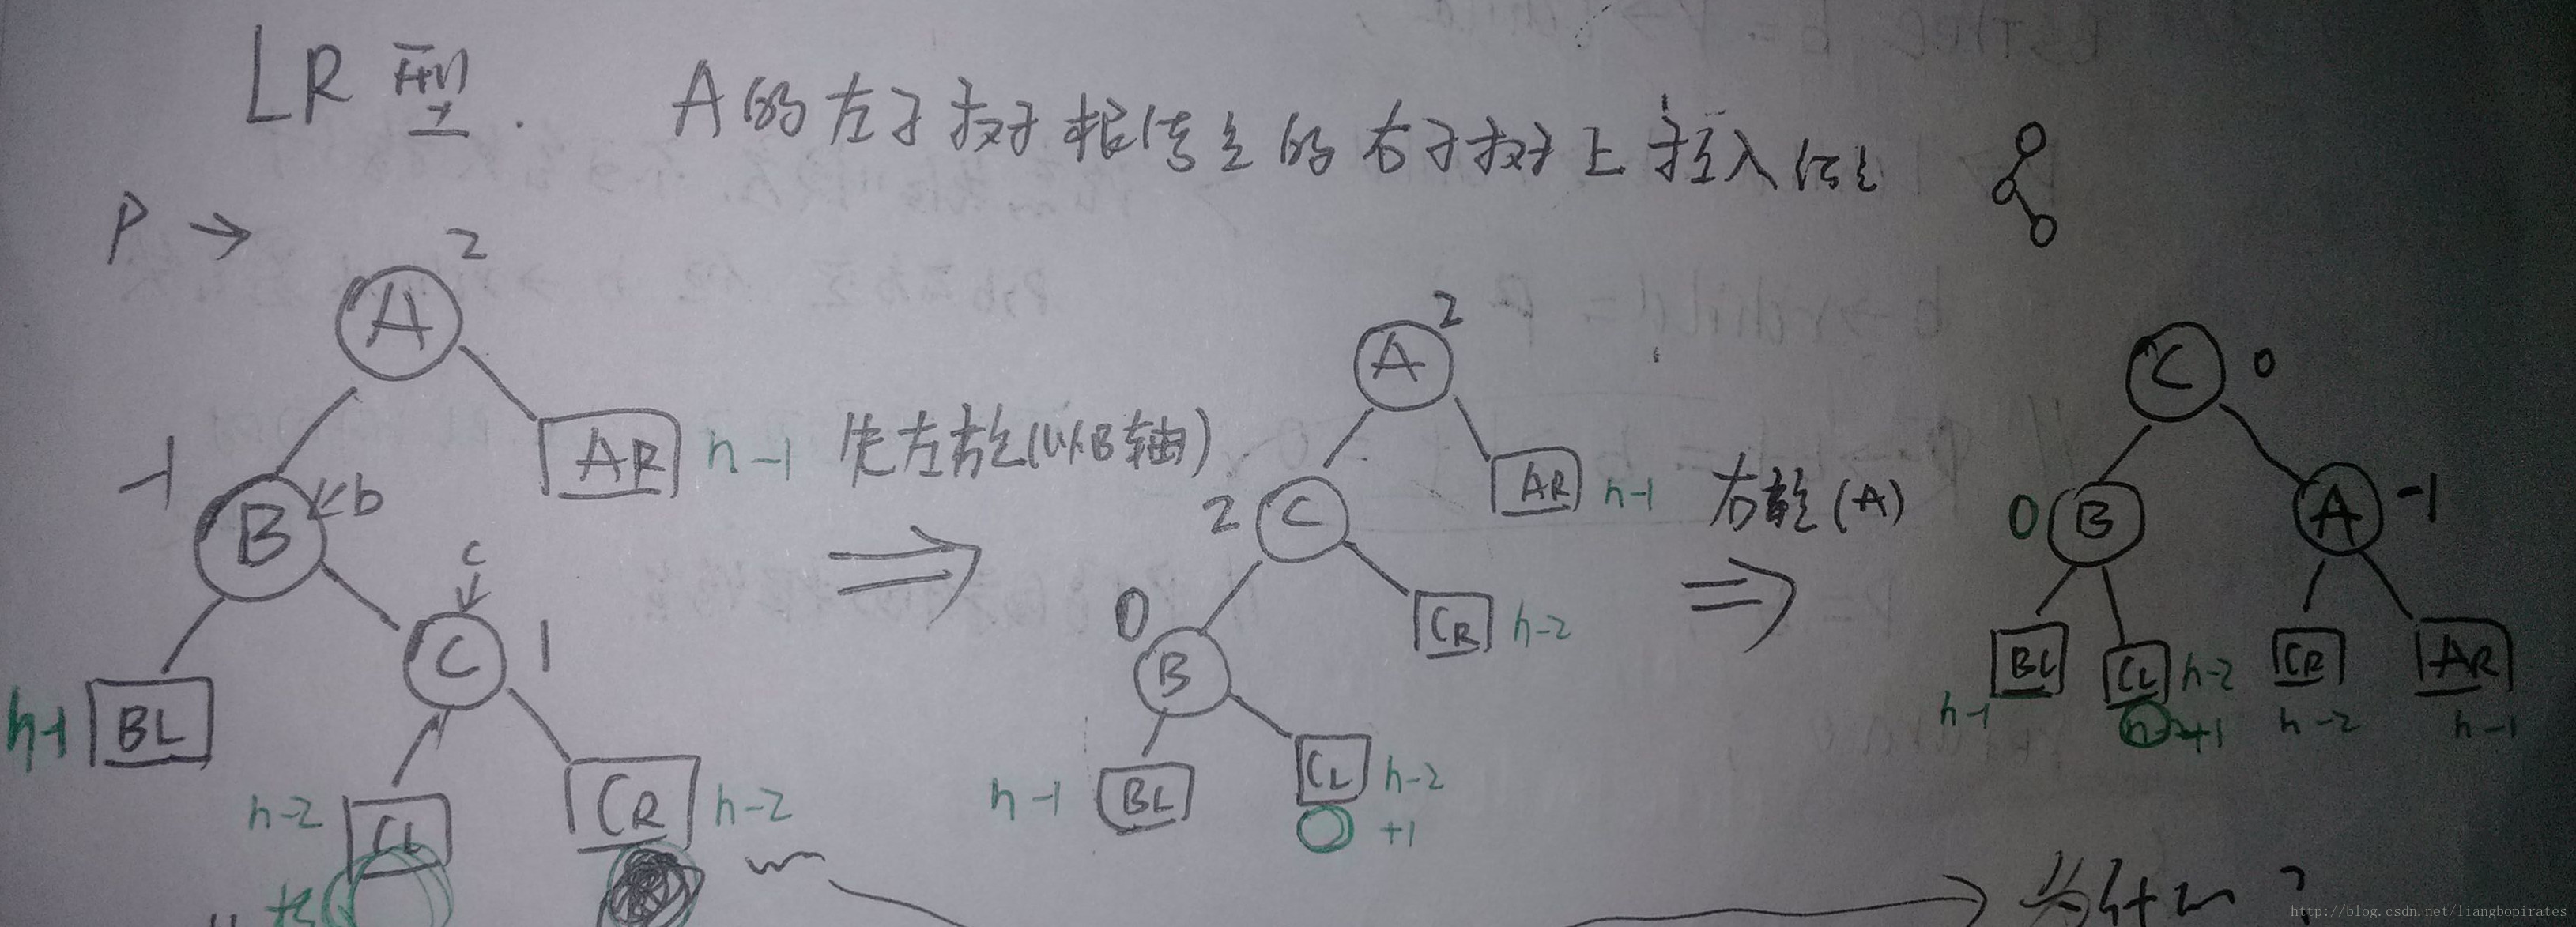 LR型. A的左子树根结点的右子树上插入结点
P →
2
A
-1
B
←b
AR
h-1
c
↓
C
1
h-1
BL
h-2
CL
CR
h-2
先左旋(以B轴)
⇒
2
A
2
C
AR
h-1
0
B
CR
h-2
h-1
BL
CL
h-2
+1
右旋(A)
⇒
C
0
0
B
A
-1
BL
h-1
CL
h-2
+1
CR
h-2
AR
h-1
为什么?
http://blog.csdn.net/liangbopirates